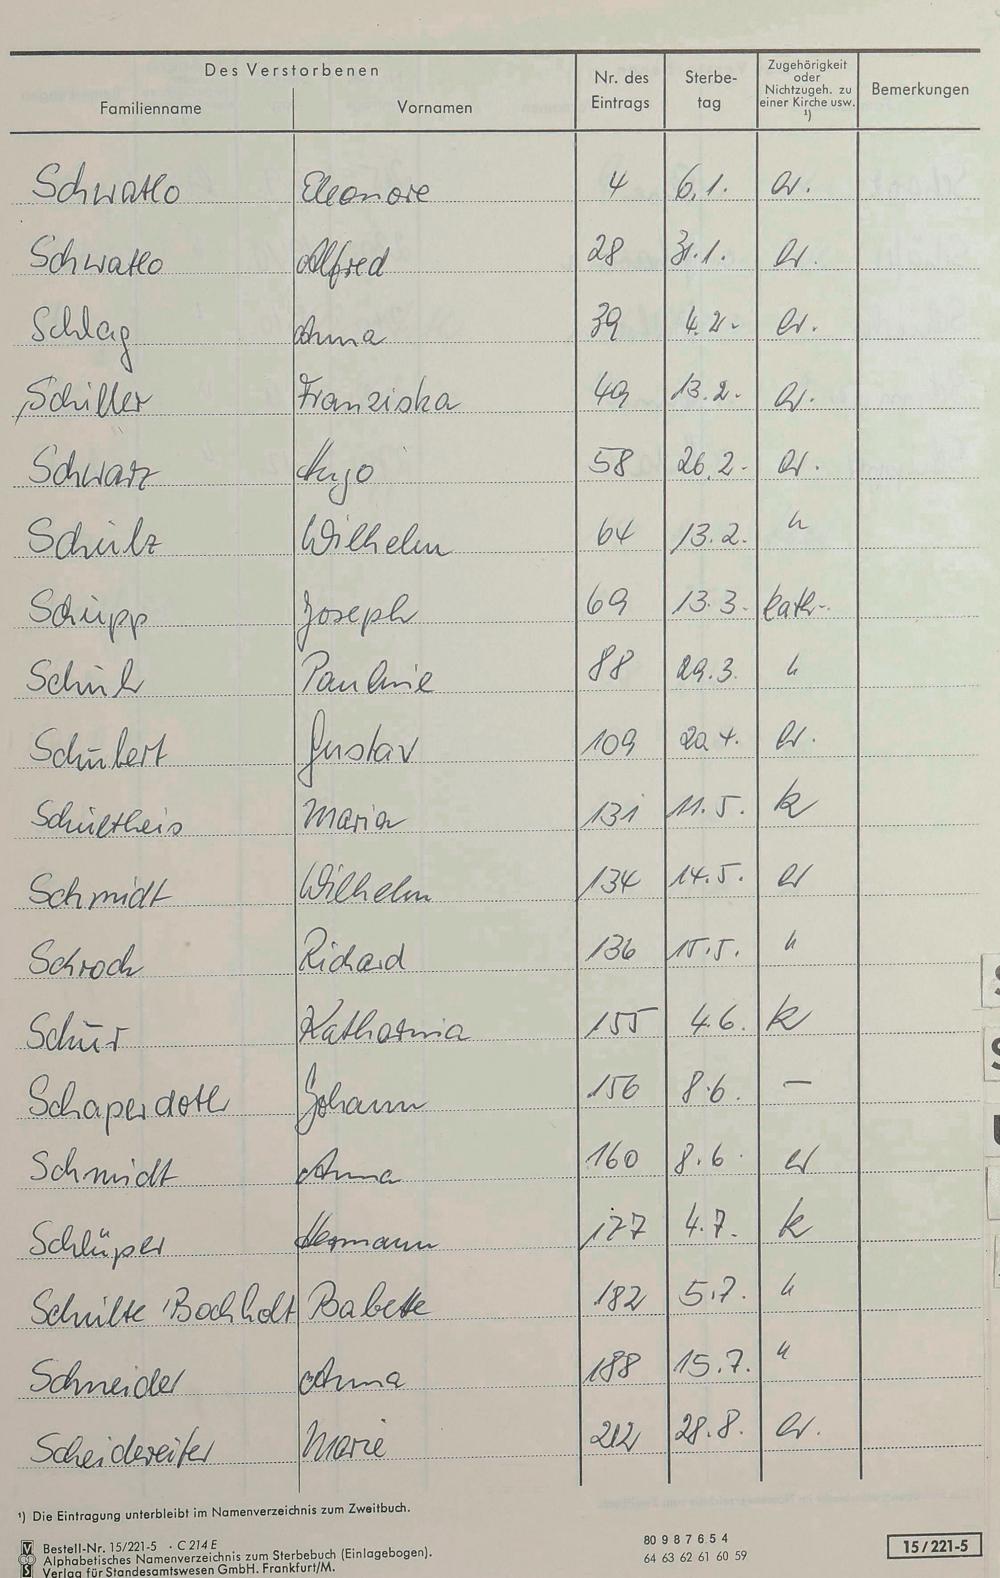 Des Verstorbenen
Familienname Vornamen Nr. des Eintrags Sterbe- tag Zugehörigkeit oder Nichtzugeh. zu einer Kirche usw. ¹) Bemerkungen
Schwatlo Eleonore 4 6.1. ev.
Schwatlo Alfred 28 31.1. ev.
Schlag Anna 39 4.2. ev.
Schiller Franziska 49 13.2. ev.
Schwarz Hugo 58 26.2. ev.
Schulz Wilhelm 64 13.2. "
Schupp Joseph 69 13.3. kath.
Schuh Pauline 88 29.3. "
Schubert Gustav 109 20.4. ev.
Schultheis Maria 131 11.5. k
Schmidt Wilhelm 134 14.5. ev
Schroch Richard 136 15.5. "
Schur Katharina 155 4.6. k
Schaperdoth Johann 156 8.6. —
Schmidt Anna 160 8.6. ev
Schlüper Hermann 177 4.7. k
Schulte Bochholt Babette 182 5.7. "
Schneider Anna 188 15.7. "
Scheidereiter Marie 212 28.8. ev.
¹) Die Eintragung unterbleibt im Namenverzeichnis zum Zweitbuch.
Bestell-Nr. 15/221-5 · C 214 E
Alphabetisches Namenverzeichnis zum Sterbebuch (Einlagebogen).
Verlag für Standesamtswesen GmbH. Frankfurt/M.
80 9 8 7 6 5 4
64 63 62 61 60 59
15/221-5